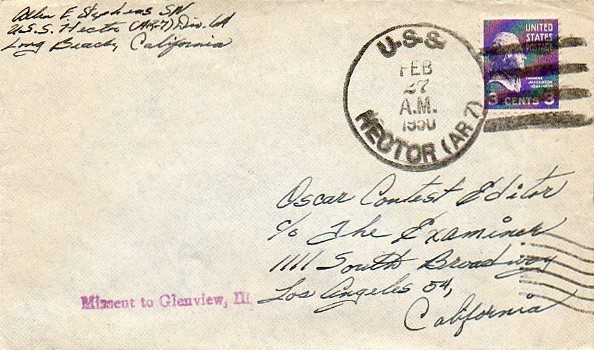 Allen E Stephens SN
U.S.S. Hector (AR-7) Div. LA
Long Beach, California
U.S.S.
FEB
27
A.M.
1950
HECTOR (AR 7)
UNITED
STATES
POSTAGE
THOMAS
JEFFERSON
3 CENTS 3
Oscar Contest Editor
c/o The Examiner
1111 South Broadway
Los Angeles 54,
California
Missent to Glenview, Ill